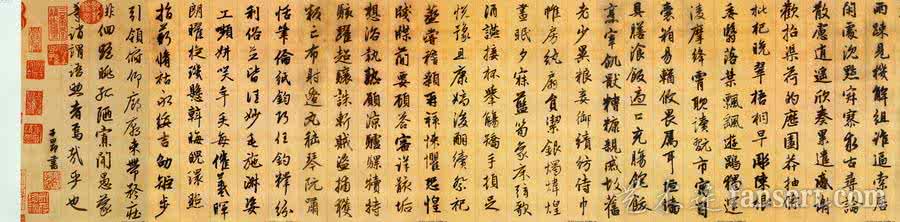 兩疎見機解組誰逼索居
閑處沉默寂寥求古尋論
散慮逍遥欣奏累遣慼謝
歡招渠荷的歷園莽抽條
枇杷晚翠梧桐早彫陳根
委翳落葉飄颻遊鵾獨運
凌摩絳霄耽讀翫市寓目
囊箱易輶攸畏屬耳垣牆
具膳飡飯適口充腸飽飫
烹宰飢猒糟糠親戚故舊
老少異粮妾御績紡侍巾
帷房紈扇員潔銀燭煒煌
晝眠夕寐藍笋象床弦歌
酒讌接杯舉觴矯手頓足
悅豫且康嫡後嗣續祭祀
蒸嘗稽顙再拜悚懼恐惶
牋牒簡要顧答審詳骸垢
想浴執熱願涼驢騾犢特
駭躍超驤誅斬賊盜捕獲
叛亡布射遼丸嵇琴阮嘯
恬筆倫紙鈞巧任釣釋紛
利俗並皆佳妙毛施淑姿
工嚬妍笑年矢每催羲暉
朗曜旋璣懸斡晦魄環照
指薪脩祜永綏吉劭矩步
引領俯仰廊廟束帶矜莊
徘徊瞻眺孤陋寡聞愚蒙
等誚謂語助者焉哉乎也
子昂書